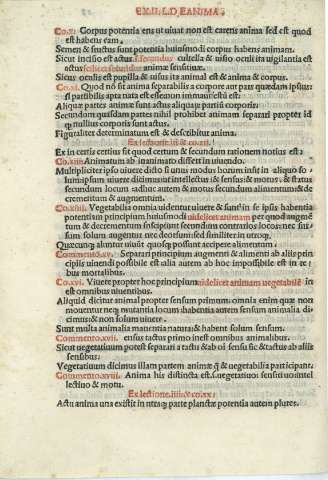 EX.II.L.D EANIMA.
Co.x. Corpus potentia ens ut uiuat non est carens anima sed est quod
est habens eam.
Semen & fructus sunt potentia huiusmodi corpus habens animam.
Sicut incisio est actus secundus cultelli a & uisio oculi ita uigilantia est
actus
Sicus oculis est pupilla & uisus ita animal est & anima & corpus.
Co.xi. Quod nõ sit anima separabilis a corpore aut pars quædam ipsius
si partibilis apta nata est esse non immanifestũ est
Aliquæ partes animæ sunt actus aliquius partis corporis.
Secundum quasdam partes nihil prohibet animam separari propter id
quod nullius corporis sunt actus.
Figuraliter determinatum est & describitur anima.
Ex lectione.iii & co.xii.
Ex in certis certius fit quod certum & secundum rationem notius est
Co.xiii. Animatum ab inanimato differt in uiuendo.
Multipliciter ipso uiuere dicto si unus modus horum insit in aliquo so
lum ipsum uiuere dicimus ut intellectus & sensus & motus. & status
secundum locum adhuc autem & motus secundum alimentum & de
crementum & augmentum.
Co.xiiii. Vegetabilia omnia uidentur uiuere & sunt in se ipsis habentia
potentiam principium huiusmodi uidelicet animam per quod augmẽ
tum & decrementum suscipiunt secundum contrarios locos: nec sur
sum augentur: nec deorsum sed similiter in utroq;
Quæcunq; aluntur uiuũt quousq; possunt accipere alimentum.
Commento.xv. Separari principium augmenti & alimenti ab aliis prin
cipiis uiuendi possibile est alia autem ab hoc impossibile est in re
bus mortalibus.
Co.xvi. Viuere propter hoc principium uidelicet animam vegetabilẽ in
est omnibus uiuentibus.
Aliquid dicitur animal propter sensum primum. omnia enim quæ non
mouentur neq; mutantia locum habentia autem sensum animalia di
cimus: & non solum uiuere.
Sunt multa animalia manentia natura: & habent solum sensum.
Commento.xvii. sensus tactus primo inest omnibus animalibus.
Sicut vegetatiuum potest separari a tactu & ab oĩ sensu sic & tactus ab aliis
sensibus.
Vegetatiuum dicimus illam partem animæ q̃ & vegetabilia participant.
Commento.xviii. Anima his distincta est. s. uegetatiuo sensitiuo intel
lectiuo & motu.
Ex lectione.iiii & co.xx.
Actu anima una existit in unaq; parte plantæ potentia autem plures.